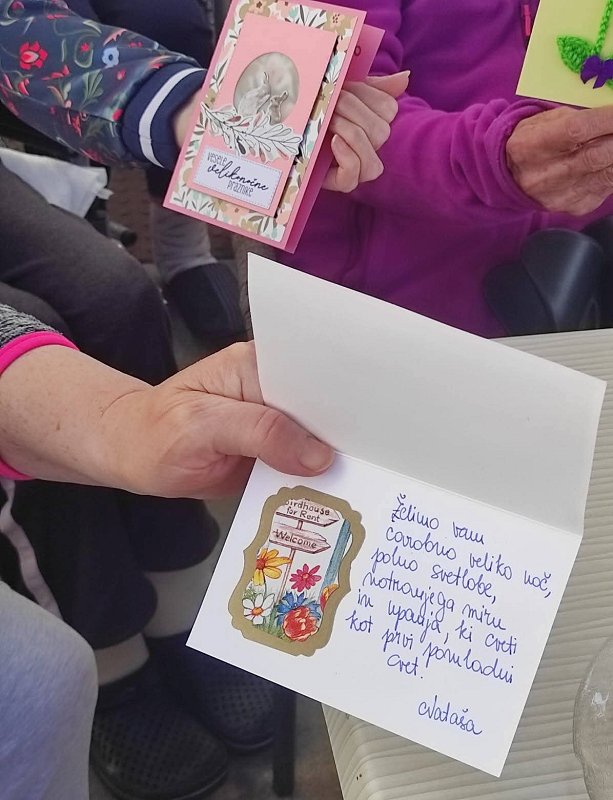 VESELE
velikonočne
PRAZNIKE
Birdhouse
for Rent
Welcome
Želimo vam
čarobno veliko noč,
polno svetlobe,
notranjega miru
in upanja, ki cveti
kot prvi pomladni
cvet.
Nataša